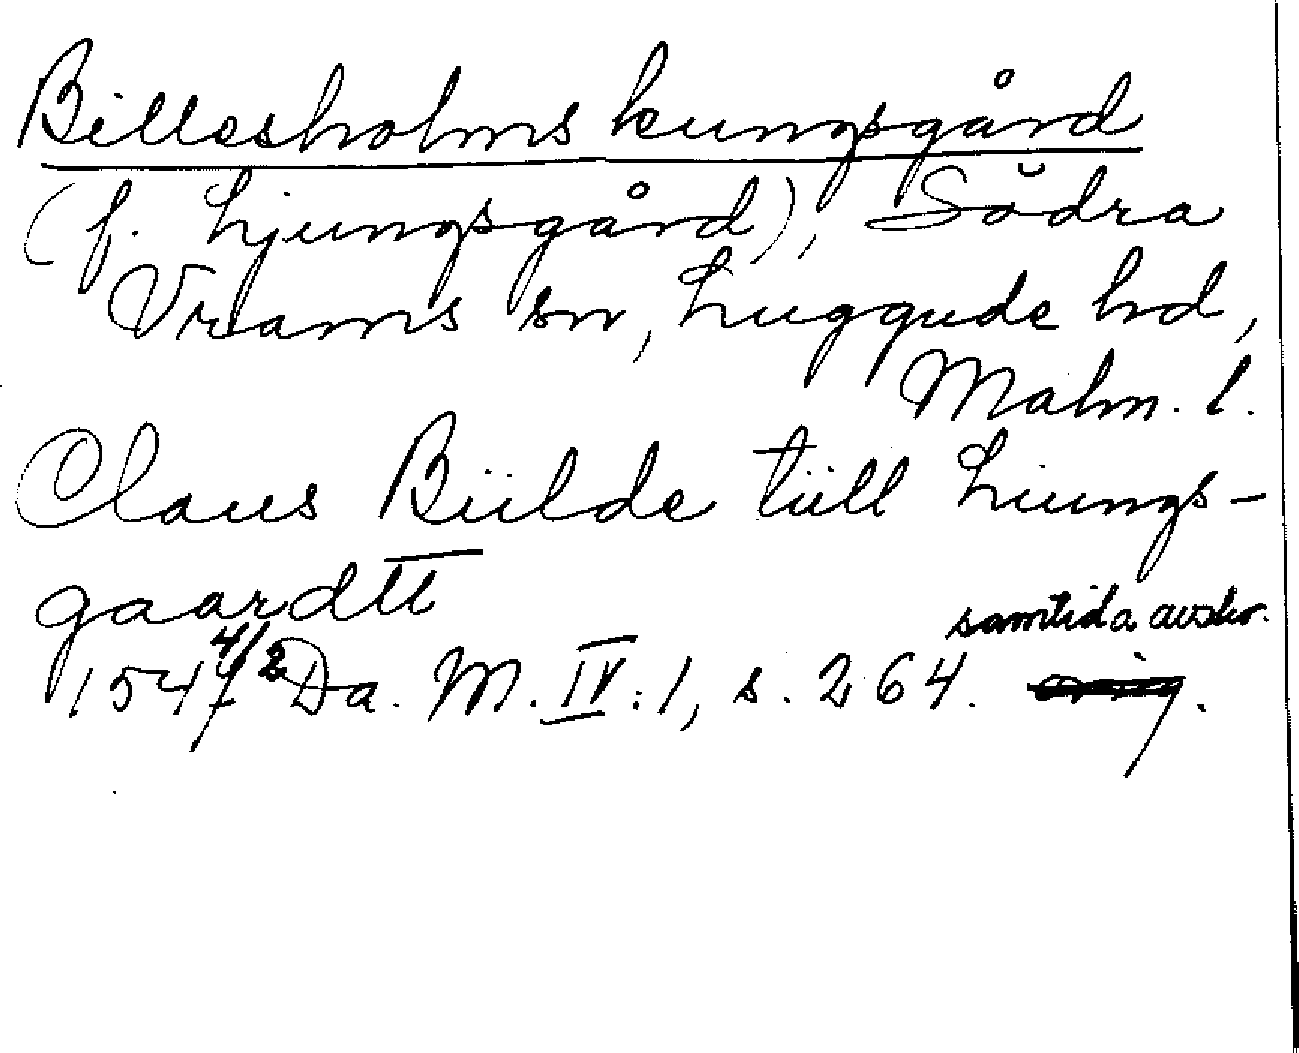 Billesholms kungsgård
(f. Ljungsgård), Södra
Vrams sn, Luggude hd,
Malm. l.
Claus Biilde tiill Liungs-
gaardtt
samtida avskr.
1547 4/2 Da. M. IV:1, s. 264.